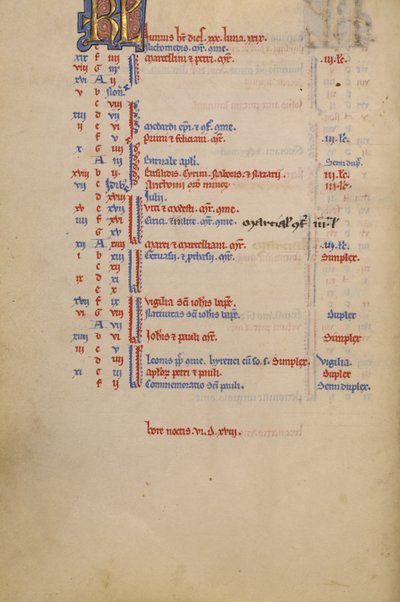 KL Junius h̄t dies. xxx. luna. xxix.
Nichomedis. m̄r. q̄me.
xix f iiii Marcellini & petri. m̄r. iii. lc.
viii G iii
xvi A ii
v b Non.
c viii
xiii d vii
ii e vi Medardi ep̄i. & ꝯf. q̄me.
f v Primi & feliciani. m̄r. iii. lc.
x G iiii
A iii Barnabe apl̄i. Semidup̄.
xviii b ii Basilidis. Cirini. Naboris. & Nazarii. iii. lc.
vii c Idib; Antonii ord minor iii. lc.
d xviii Julii.
xv e xvii Viti & modesti. m̄r. q̄me.
iiii f xvi Cirici. & iulitte. m̄r. q̄me. Marcial' ꝯf. iii. l'
G xv
xii A xiiii Marci & marcelliani. m̄r. iii. lc.
i b xiii Geruasii. & p̄thasii. m̄r. Simplex.
c xii
ix d xi
e x
xvii f ix Vigilia sc̄i ioh̄is bap̄t.
vi G viii Natiuitas sc̄i ioh̄is bap̄t. Duplex
A vii
xiiii b vi Ioh̄is & pauli. m̄r. Simplex
iii c v
d iiii Leonis p̄p. q̄me. Simplex. Vigilia.
xi e iii Apl̄oꝝ petri & pauli. Duplex
f ii Commemoratio sc̄i pauli. Semiduplex.
hore noctis. vi. d. xviii.